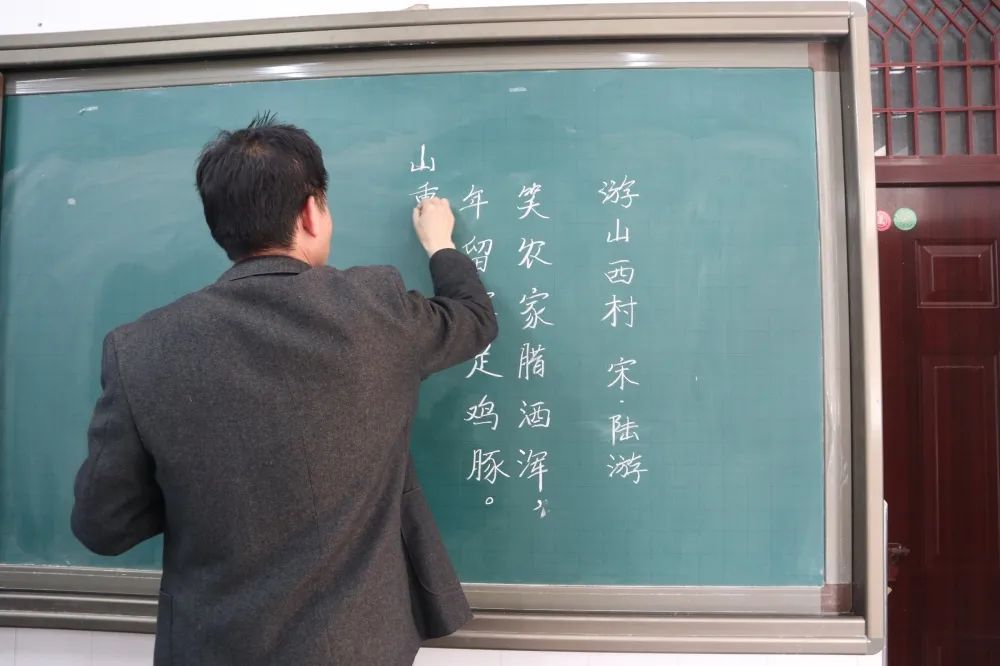 游山西村 宋·陆游
笑农家腊酒浑，
年留足鸡豚。
山重